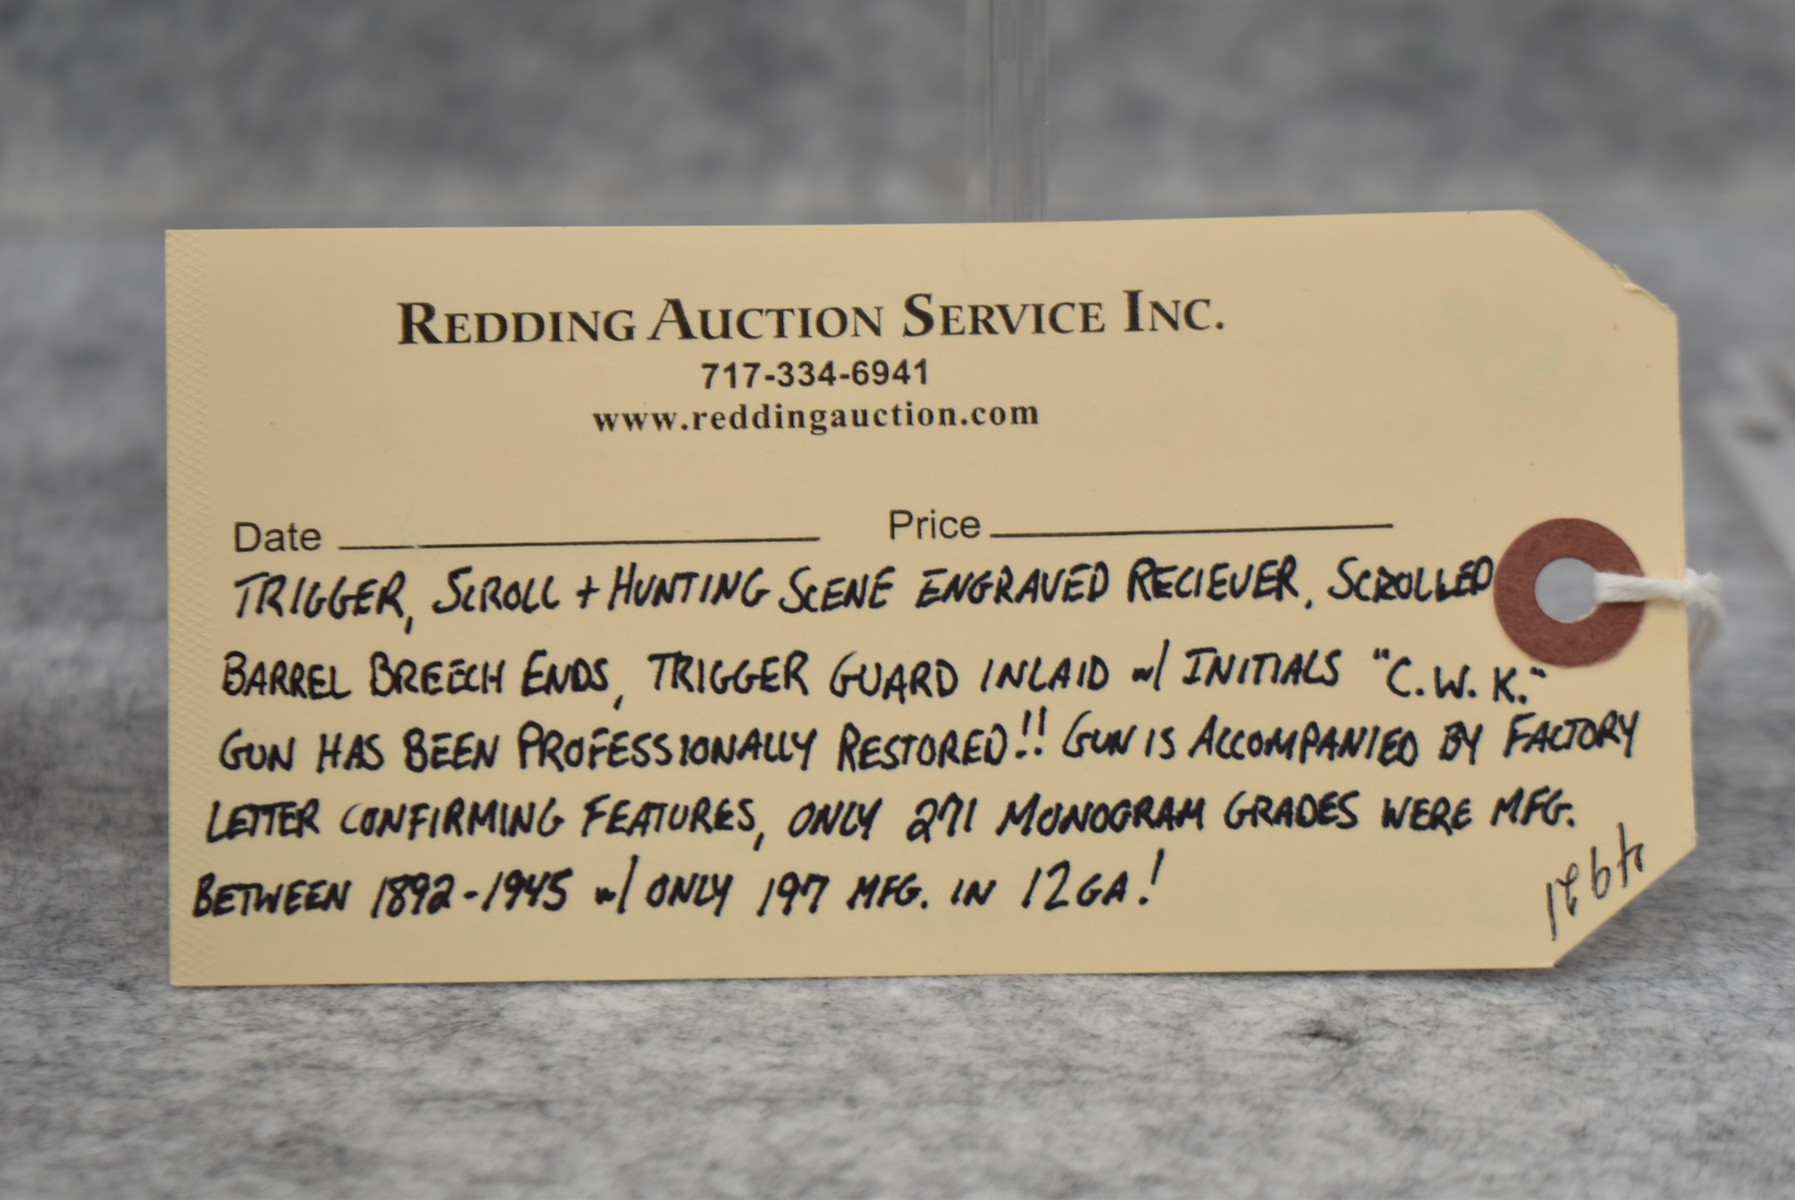 REDDING AUCTION SERVICE INC.
717-334-6941
www.reddingauction.com
Date Price
TRIGGER, SCROLL + HUNTING SCENE ENGRAVED RECIEVER, SCROLLED
BARREL BREECH ENDS, TRIGGER GUARD INLAID w/ INITIALS "C.W.K."
GUN HAS BEEN PROFESSIONALLY RESTORED!! GUN IS ACCOMPANIED BY FACTORY
LETTER CONFIRMING FEATURES, ONLY 271 MONOGRAM GRADES WERE MFG.
BETWEEN 1892-1945 w/ ONLY 197 MFG. IN 12GA!